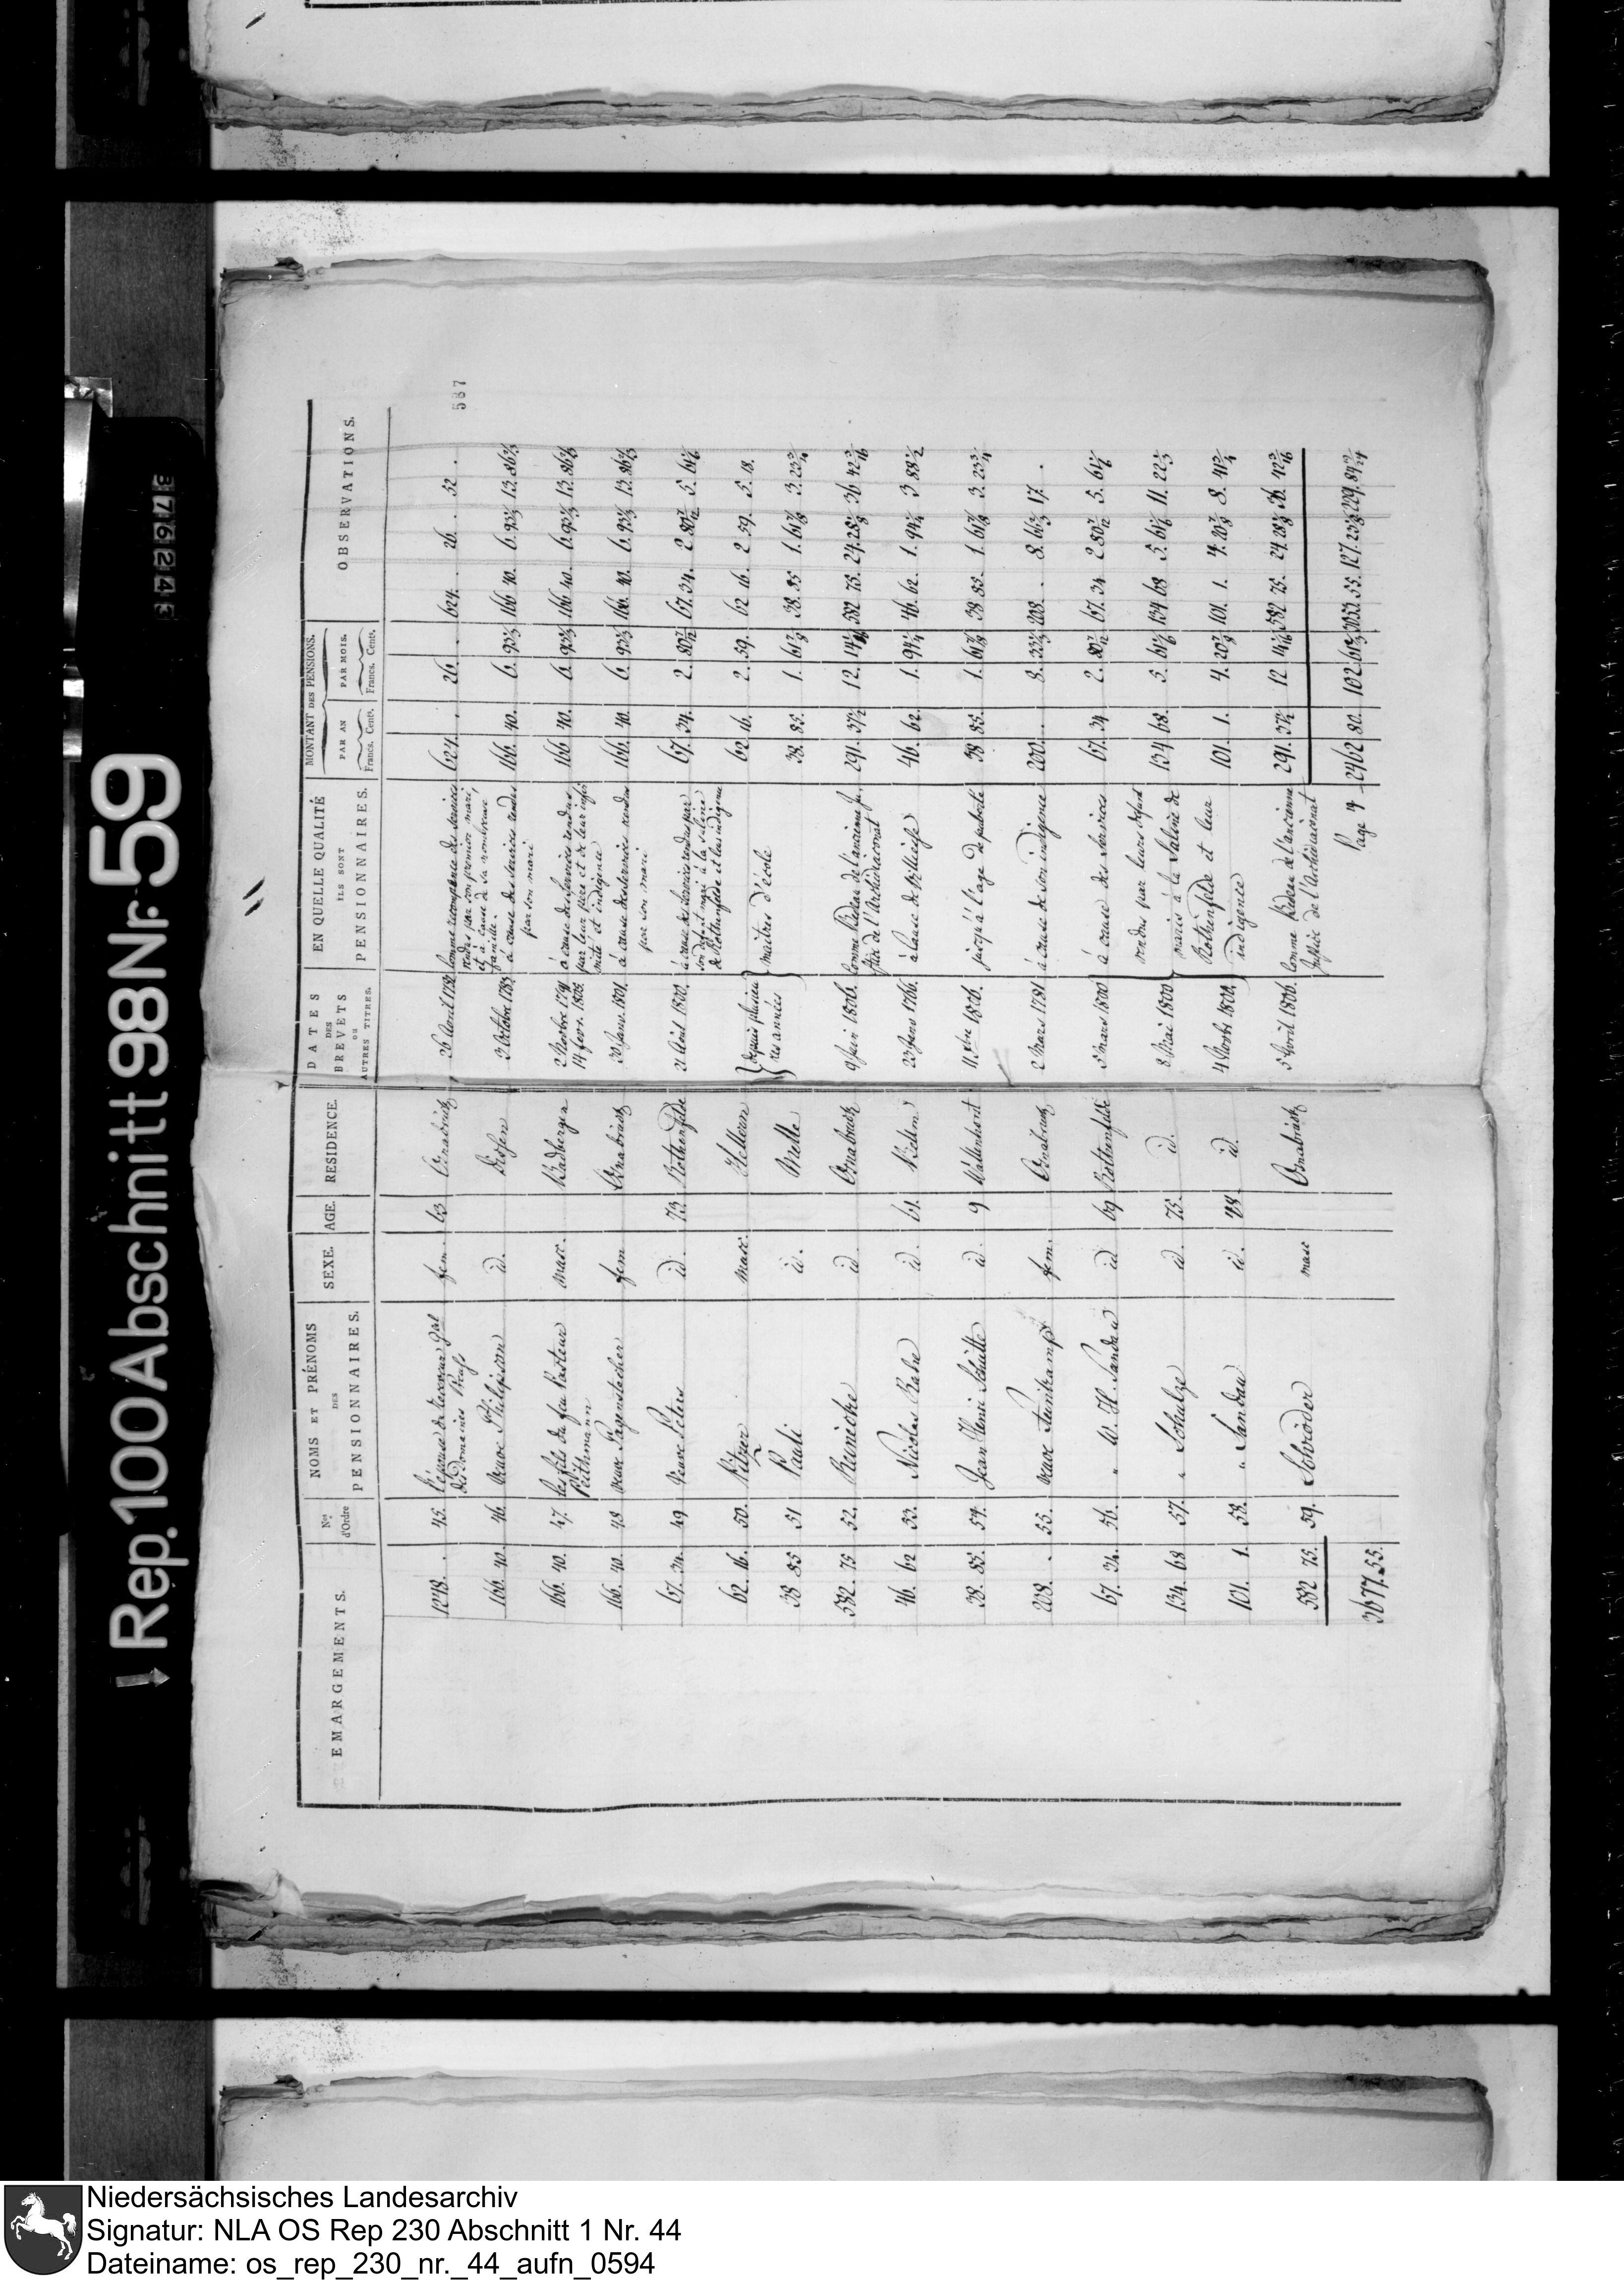 ↓ Rep. 100 A Abschnitt 98 Nr. 59
3762433
587
EMARGEMENTS. | Nos d'Ordre | NOMS ET PRÉNOMS DES PENSIONNAIRES. | SEXE. | AGE. | RESIDENCE. | DATES DES BREVETS OU AUTRES TITRES. | EN QUELLE QUALITÉ ILS SONT PENSIONNAIRES. | MONTANT DES PENSIONS. PAR AN Francs. Cents. | PAR MOIS. Francs. Cents. | OBSERVATIONS.
1248. . | 45. | l'épouse du receveur gal des Domaines | fem. | 63 | Osnabrück | 26 Avril 1792 | comme recompense des services rendus par son premier mari et à cause de sa nombreuse famille. | 624. . | 26 . | 624. . 26 . 52 .
166. 40. | 46. | veuve Philipson | id. | | Dissen | 3 Octobre 1783 | à cause des services rendus par son mari | 166. 40. | 6. 93⅓ | 166 40. 6. 93⅓ 13. 86⅔
166. 40. | 47. | les fils du feu Pasteur Pithmann | masc. | | Badbergen | 2 Novbre 1791. 14 fevr. 1805. | à cause des services rendus par leur père et de leur infirmité et indigence | 166 40. | 6 93⅓ | 166 40. 6. 93⅓ 13. 86⅔
166. 40. | 48 | veuve Pagenstecher | fem | | Osnabrück | 30 Janv. 1801. | à cause des services rendus par son mari | 166. 40. | 6. 93⅓ | 166. 40. 6. 93⅓ 13. 86⅔
67. 34. | 49 | Veuve Peters | id. | 73. | Rothenfelde | 21 Août 1800. | à cause des services rendus par son defunt mari à la saline de Rothenfelde et las indigence | 67. 34. | 2. 80 7/12 | 67. 34. 2 80 7/12 5. 61⅙
62. 16. | 50. | Pitzer | masc. | | Hellern | depuis plusieurs années | maitres d'école | 62 16. | 2. 59. | 62 16. 2 59. 5. 18.
38 85 | 51 | Pauli | id. | | Melle | | | 38. 85. | 1. 61⅞ | 38. 85 1. 61⅞ 3. 23¾
582. 75 | 52. | Reinecke | id | | Osnabrück | 9 Juin 1806. | comme Pedeau de l'ancienne Justice de l'Archidiaconat | 291. 37½ | 12. 14 1/16 | 582 75. 24. 28⅛ 36 42 3/16
46. 62 | 53. | Nicolas Rahe | id. | 61. | Belm | 23 Janv 1766. | à cause de | 46. 62. | 1. 94¼ | 46. 62. 1. 94¼ 3 88½
38. 85. | 54. | Jean Henri Schütte | id | 9 | Wallenhorst | 11. Xbre 1806. | jusqu'à l'age de puberté | 38 85. | 1. 61⅞ | 38 85. 1. 61⅞ 3. 23¾
208. . | 55. | veuve | fem. | | Osnabruck | 2 Mars 1791 | à cause de son indigence | 200. . | 8. 33⅓ | 208. . 8. 66⅔ 17. .
67. 34. | 56. | " W. H. Sandau | id | 69 | Rothenfelde | 5 mars 1800 | à cause des services | 67. 34 | 2. 80 7/12 | 67. 34 2 80 7/12 5. 61⅙
134. 68 | 57. | " Schulze | id | 75. | id. | 8 Mai 1800 | rendus par leurs defunt maris à la Saline de | 134 68. | 5. 61⅙ | 134 68 5. 61⅙ 11. 22⅓
101. 1. | 58. | " Sandau | id. | 48 | id. | 4 Novbr 1802. | Rothenfelde et leur indigence | 101. 1. | 4. 20⅞ | 101. 1. 4. 20⅞ 8. 41¾
582 75. | 59. | Schröder | masc | | Osnabrück | 3 Avril 1806. | comme Pedeau de l'ancienne Justice de l'Archidiaconat | 291. 37½ | 12 14 1/16 | 582 75. 24 28⅛ 36. 42 3/16
3677. 55. | Page 4 | 2462 80. | 102.
Niedersächsisches Landesarchiv
Signatur: NLA OS Rep 230 Abschnitt 1 Nr. 44
Dateiname: os_rep_230_nr._44_aufn_0594